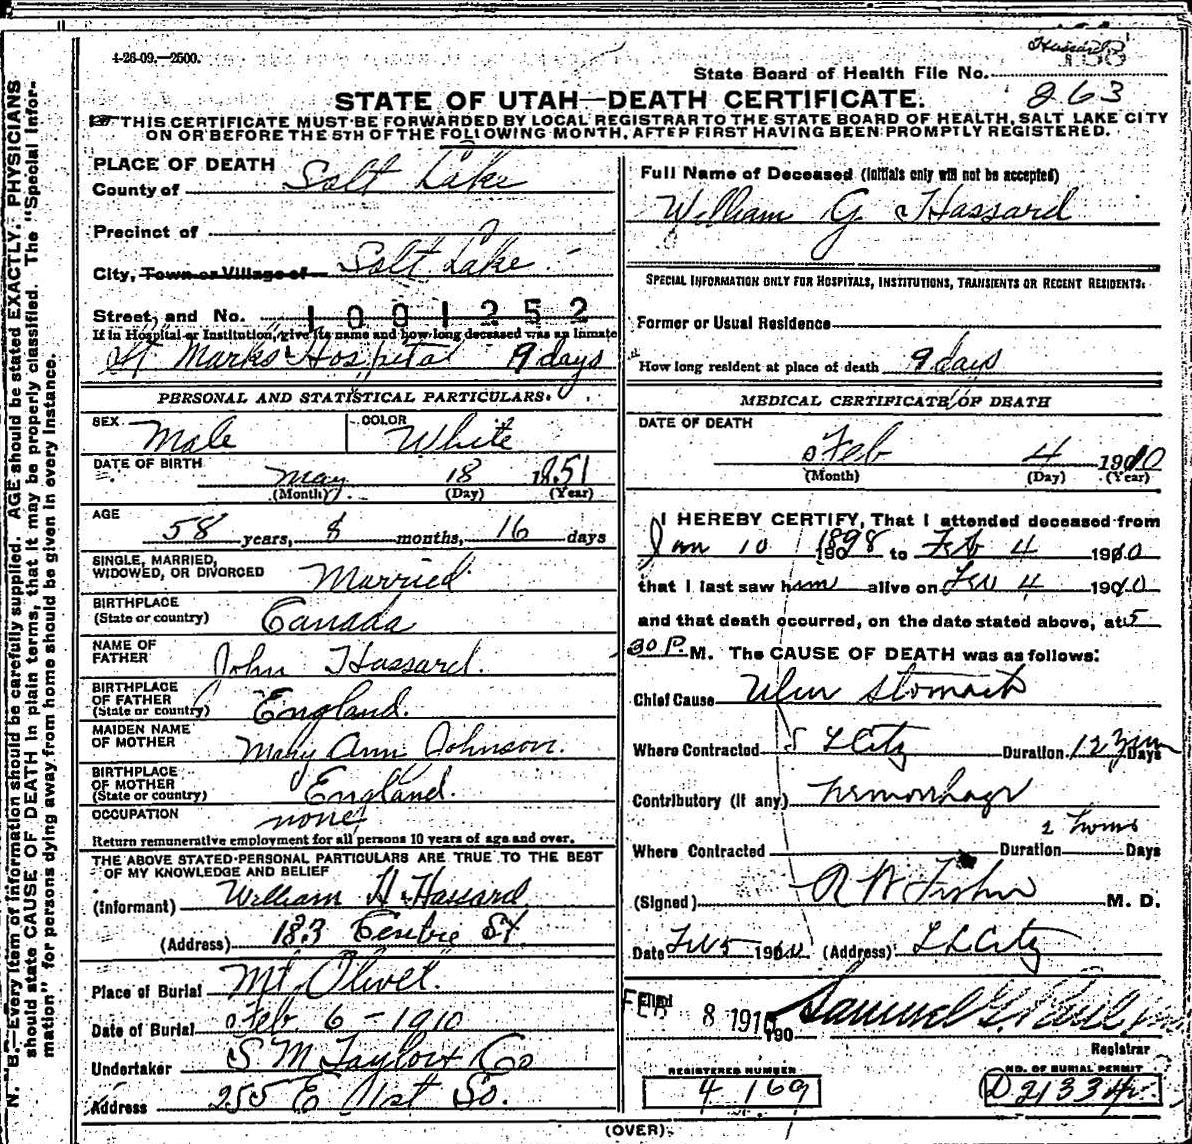 4-26-09.—2500.
Hassard
State Board of Health File No.
263
STATE OF UTAH—DEATH CERTIFICATE.
THIS CERTIFICATE MUST BE FORWARDED BY LOCAL REGISTRAR TO THE STATE BOARD OF HEALTH, SALT LAKE CITY
ON OR BEFORE THE 5TH OF THE FOLLOWING MONTH, AFTER FIRST HAVING BEEN PROMPTLY REGISTERED.
N. B.—Every item of information should be carefully supplied. AGE should be stated EXACTLY. PHYSICIANS
should state CAUSE OF DEATH in plain terms, that it may be properly classified. The "Special Infor-
mation" for persons dying away from home should be given in every instance.
PLACE OF DEATH
County of Salt Lake
Precinct of
City, Town or Village of Salt Lake
Street, and No. 1001252
If in Hospital or Institution, give its name and how long deceased was an Inmate
St Marks Hospital 9 days
PERSONAL AND STATISTICAL PARTICULARS.
SEX Male COLOR White
DATE OF BIRTH May 18 1851
(Month) (Day) (Year)
AGE
58 years, 8 months, 16 days
SINGLE, MARRIED,
WIDOWED, OR DIVORCED Married
BIRTHPLACE
(State or country) Canada
NAME OF
FATHER John Hassard.
BIRTHPLACE
OF FATHER
(State or country) England.
MAIDEN NAME
OF MOTHER Mary Ann Johnson.
BIRTHPLACE
OF MOTHER
(State or country) England.
OCCUPATION none
Return remunerative employment for all persons 10 years of age and over.
THE ABOVE STATED PERSONAL PARTICULARS ARE TRUE TO THE BEST
OF MY KNOWLEDGE AND BELIEF
(Informant) William H Hassard
(Address) 183 Centre St
Place of Burial Mt. Olivet.
Date of Burial Feb. 6 - 1910
Undertaker S M Taylor & Co
Address 255 E 1st So.
Full Name of Deceased (Initials only will not be accepted)
William G. Hassard
SPECIAL INFORMATION ONLY FOR HOSPITALS, INSTITUTIONS, TRANSIENTS OR RECENT RESIDENTS.
Former or Usual Residence
How long resident at place of death 9 days
MEDICAL CERTIFICATE OF DEATH
DATE OF DEATH
Feb 4 1910
(Month) (Day) (Year)
I HEREBY CERTIFY, That I attended deceased from
Jan 10 1898 to Feb 4 1910
that I last saw him alive on Feb 4 1910
and that death occurred, on the date stated above, at 5
30 P. M. The CAUSE OF DEATH was as follows:
Chief Cause Ulcer Stomach
Where Contracted S L City Duration 12 years Days
Contributory (if any) hemorrhage
2 hours
Where Contracted Duration Days
(Signed) M. D.
Date Feb 5 1910 (Address) S L City
Filed FEB 8 1910 Samuel G. Paul
190
Registrar
REGISTERED NUMBER
4 169
NO. OF BURIAL PERMIT
D 21334
(OVER)